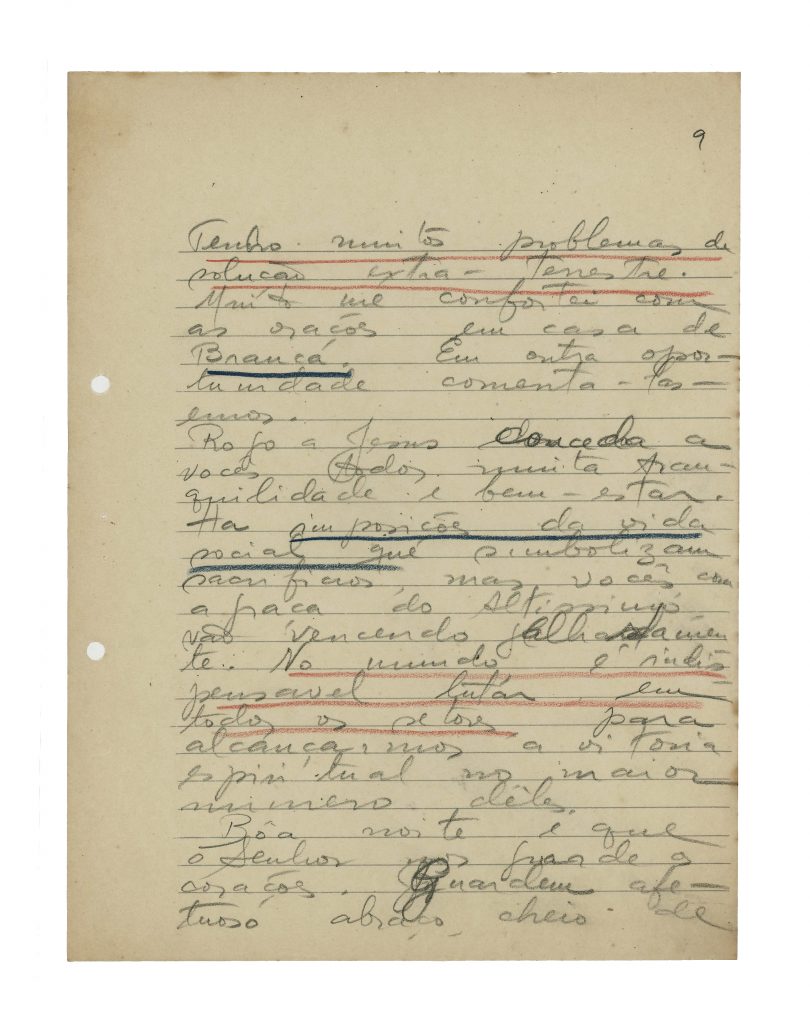 9
Tenho muitos problemas de
solução extra-terrestre.
Muito me confortei com
as orações em casa de
Branca. Em outra opor-
tunidade comenta-las-
emos.
Rogo a Jesus conceda a
vocês todos muita tran-
quilidade e bem-estar.
Ha imposições da vida
social que simbolizam
sacrificios, mas, vocês com
a graça do Altissimo
vão vencendo galhardamen
te. No mundo é indis
pensavel lutar em
todos os setores para
alcançarmos a vitoria
espiritual no maior
numero dêles.
Bôa noite e que
o Senhor nos guarde os
corações. Guardem afe-
tuoso abraço, cheio de